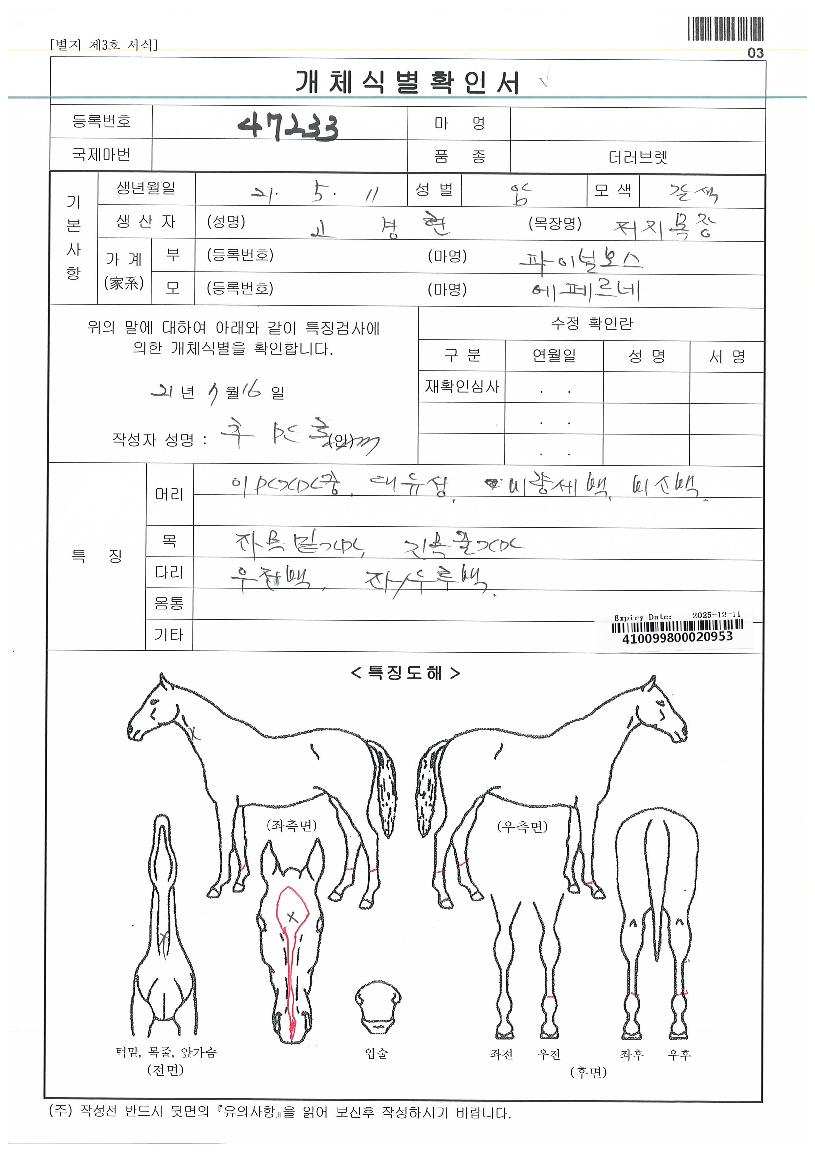 [별지 제3호 서식]
03
개체식별확인서
등록번호 47233 마 명
국제마번 품 종 더러브렛
기본사항
생년월일 21. 5. 11 성별 암 모색 갈색
생산자 (성명) 고 경 현 (목장명) 저지목장
가계 (家系) 부 (등록번호) (마명) 파이널보스
모 (등록번호) (마명) 에페르네
위의 말에 대하여 아래와 같이 특징검사에
의한 개체식별을 확인합니다.
21 년 9 월 16 일
작성자 성명 : (인)
수정 확인란
구 분 연월일 성 명 서 명
재확인심사 . .
. .
. .
특 징
머리 대유성, 비량세백, 비소백.
목
다리 우전백, 좌/우후백.
몸통
기타
Expiry Date: 2025-12-11
410099800020953
< 특징도해 >
(좌측면) (우측면)
턱밑, 목줄, 앞가슴
(전면)
입술
좌전 우전 좌후 우후
(후면)
(주) 작성전 반드시 뒷면의 『유의사항』을 읽어 보신후 작성하시기 바랍니다.